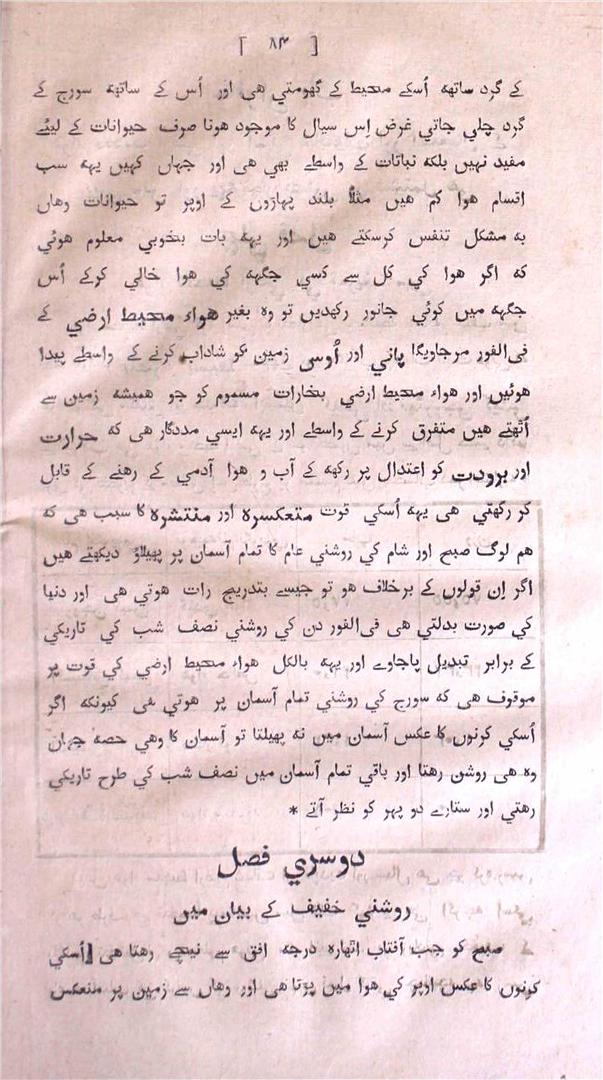 [ ۸۳ ]
کے گرد ساتھہ اُسکے محیط کے گھومتي هی اور اُس کے ساتھہ سورج کے
گرد چلي جاتي غرض اِس سیال کا موجود هونا صرف حیوانات کے لیئے
مفید نہیں بلکہ نباتات کے واسطے بھي هی اور جہاں کہیں یہہ سب
اقسام هوا کم هیں مثلاً بلند پہاڑوں کے اوپر تو حیوانات وهاں
بہ مشکل تنفس کرسکتے هیں اور یہہ بات بخوبي معلوم هوئي
کہ اگر هوا کي کل سے کسي جگہہ کي هوا خالي کرکے اُس
جگہہ میں کوئي جانور رکھدیں تو وہ بغیر هواء محیط ارضي کے
فی‌الفور مرجاویگا پاني اور اُوس زمین کو شاداب کرنے کے واسطے پیدا
هوئیں اور هواء محیط ارضي بخارات مسموم کو جو همیشہ زمین سے
اُتھتے هیں متفرق کرنے کے واسطے اور یہہ ایسي مددگار هی کہ حرارت
اور برودت کو اعتدال پر رکھہ کے آب و هوا آدمي کے رهنے کے قابل
کر رکھتي هی یہہ اُسکي قوت متعکسرہ اور منتشرہ کا سبب هی کہ
هم لوگ صبح اور شام کي روشني عام کا تمام آسمان پر پھیلاؤ دیکھتے هیں
اگر اِن قولوں کے برخلاف هو تو جیسے بتدریج رات هوتي هی اور دنیا
کي صورت بدلتي هی فی‌الفور دن کي روشني نصف شب کي تاریکي
کے برابر تبدیل پاجاوے اور یہہ بالکل هواء محیط ارضي کي قوت پر
موقوف هی کہ سورج کي روشني تمام آسمان پر هوتي هی کیونکہ اگر
اُسکي کرنوں کا عکس آسمان میں نہ پھیلتا تو آسمان کا وهي حصہ جہاں
وہ هی روشن رهتا اور باقي تمام آسمان میں نصف شب کي طرح تاریکي
رهتي اور ستارے دو پہر کو نظر آتے *
دوسري فصل
روشني خفیف کے بیان میں
صبح کو جب آفتاب اتھارہ درجہ افق سے نیچے رهتا هی اُسکي
کرنوں کا عکس اوپر کي هوا میں پڑتا هی اور وهاں سے زمین پر منعکس